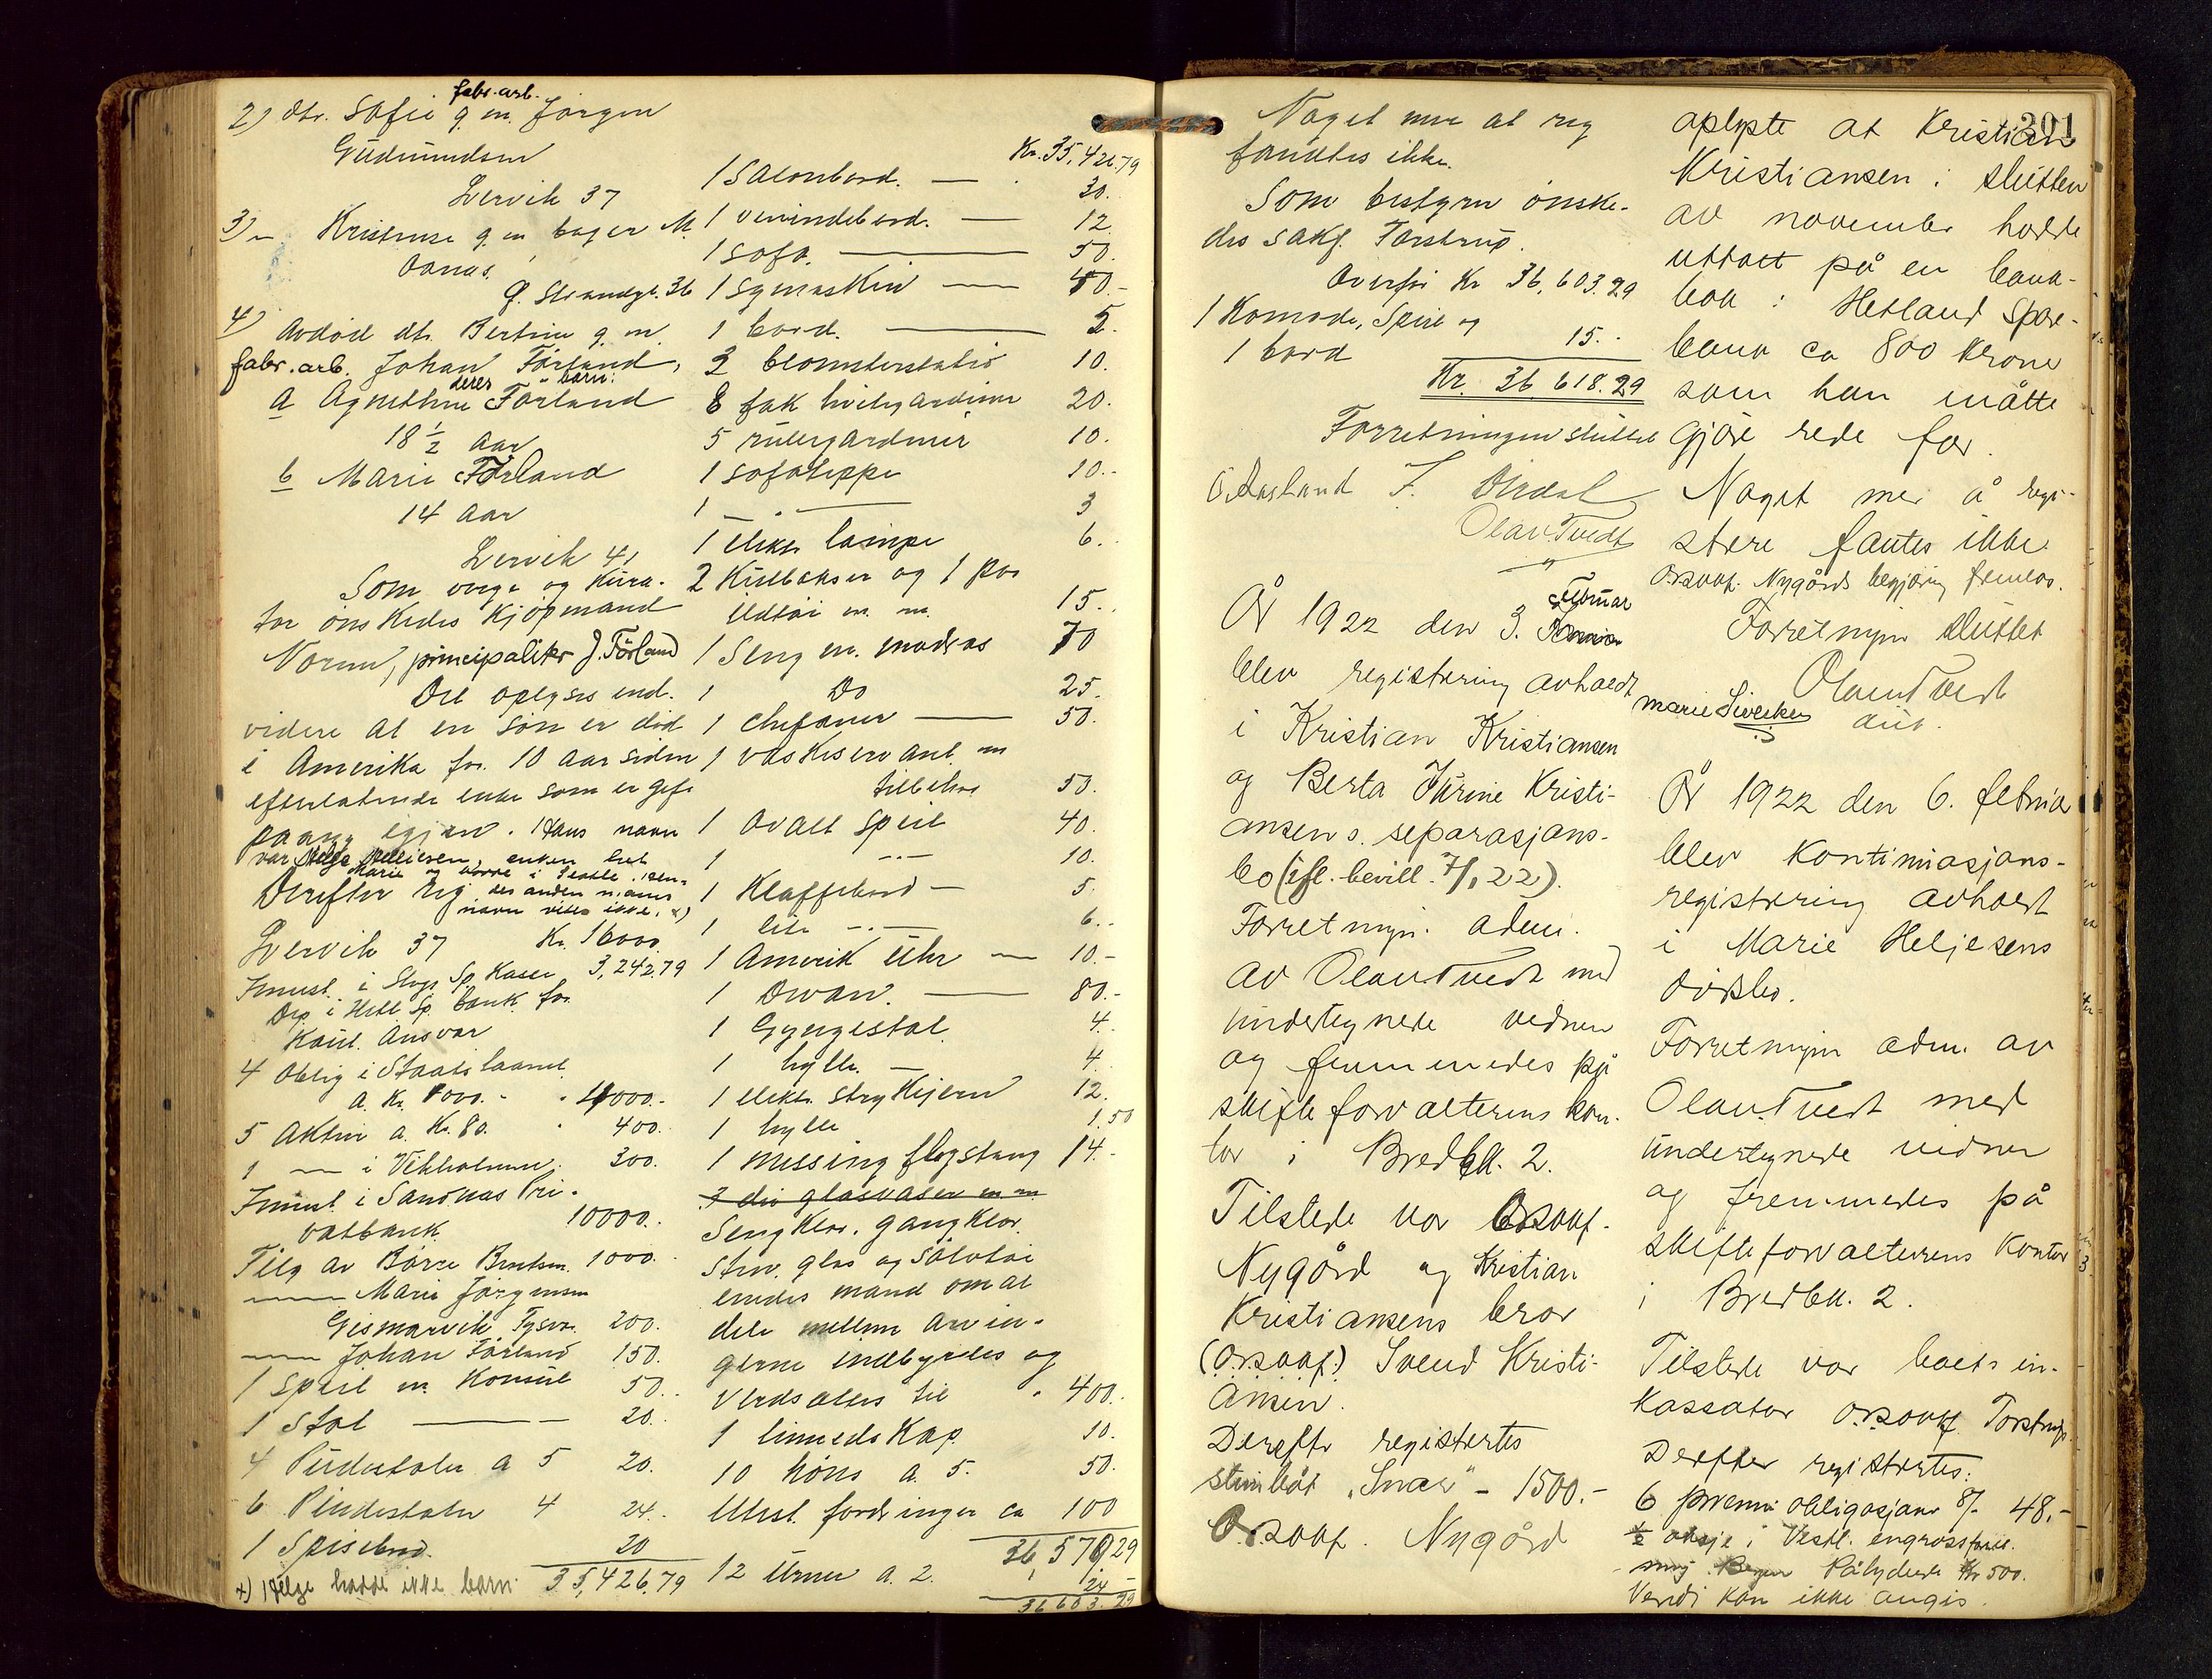 fabr. arb.
2) dtr. Sofie g. m. Jörgen
Gudmundsen
Lervik 37
3) " Kristense g. m. bager M.
Aanas.
Ø. Strandgt. 36
4) Avdöd dtr. Bertine g. m.
fabr. arb. Johan Förland,
deres barn:
a Agnethine Förland
18 ½ aar
b Marie Förland
14 aar
Lervik 41
Som verge og Kura-
tor önskedes Kjöpmand
Norum, principalitr J. Förland
Det oplyses end-
videre at en sön er död
i Amerika for 10 aar siden
efterlatende enke som er gift
paany igjen. Hans navn
var Helge Helliesen, enken het
Marie og boede i Seattle, den-
des anden mands
navn vites ikke. x)
Derefter reg.
Lervik 37 Kr. 16000
Innest. i Stvgr. Sp. Kasse 3,242.79
Dep. i Hetl. Sp. bank for
Kaut. Ansvar
4 Oblig i Statslaanet
a. Kr. 1000. - 4000.-
5 Aktier a. Kr. 80. 400.
1 — i Vikholmen. 300.
Innest. i Sandnas Pri-
vatbank 10000.
Tilg av Börre Bentsen 1000.
— Marie Jörgensen
Gismarvik Tysvær 200.
— Johan Förland 150.
1 speil m. Konsul 50.
1 Stol — 20.
4 Pindestoler a 5 20.
6 Pindestoler 4 24.
1 Spisebord. 20
35,426.79
x) Helge hadde ikke barn.
Kr. 35,426.79
1 Salonbord. — 30.
1 vervindebord. — 12.
1 sofa. — 50.
1 symaskin — 40.-
1 bord. — 5.
2 blomsterstativ 10.
8 fak hvitegardiner 20.
5 rullegardiner 10.
1 sofateppe 10.-
1 — " — 3
1 elektr. lampe 6.
2 Kulbokser og 1 par
ildtöi m. m. 15.
1 Seng m. madras 70
1 Do 25.
1 chefonier — 50.
1 vaskeservant m
tilbehör 50.
1 ovalt speil 40.
1 —"— 10.
1 Klaffebord — 5.
1 lite —"— 6.-
1 Amerik Uhr — 10.-
1 Divan. — 80.-
1 Gyngestol. 4.
1 hylle. — 4.
1 elektr. strykejern 12.
1 hylle 1.50
1 messing flagstang 14.-
3 div glasvaser m m
Sengklær, gangklær
Stev. glas og Sölvtöi
enedes mand om at
dele mellem arvin-
gerne indbyrdes og
verdsattes til " 400.
1 linnedskap 10.
10 höns a. 5. 50.
Utest. fordringer ca 100
36,579.29
12 Urner a. 2. 24 -
36 603. 29
Noget mer at reg
fandtes ikke.
Som bestyrer önske-
des sakf. Torstrup.
Overfört Kr 36,603.29
1 Komode, Speil og
1 bord 15..
Kr. 36.618.29
Forretningen sluttet
O. Aasland F. Dirdal
Olav Tvedt
"
Februar
År 1922 den 3.
blev registrering avholdt
i Kristian Kristiansen
og Berta Jurine Kristi-
ansen s. separasjons-
bo (ifl. bevill. 7/1 22).
Forretngn. adm.
av Olav Tvedt med
undertegnede vidner
og fremmedes på
skifteforvalterens kon-
tor i Bredbk. 2.
Tilstede var O.rsakf.
Nygård og Kristian
Kristiansens bror
(O.rsakf.) Svend Kristi-
ansen.
Derefter registertes
stimbåt "Snar" - 1500.-
O.rsakf. Nygård
301
oplyste at Kristian
Kristiansen i slutten
av november hadde
uttatt på en bank-
bok i Hetland Spare-
bank ca 800 kroner
som han måtte
gjöre rede for.
Noget mer å regi-
strere fantes ikke.
O.rsakf. Nygårds begjæring fremlas.
Forretngn sluttet
Olav Tvedt
Marie Sivertsen aut.
År 1922 den 6. februar
blev kontinuasjons-
registrering avholdt
i Marie Heljesens
dödsbo.
Forretngn adm. av
Olav Tvedt med
undertegnede vidner
og fremmedes på
skifteforvalterens kontor
i Bredbk. 2.
Tilstede var boets in-
kassator O.rsakf. Torstrup.
Derefter registrertes:
6 premieobligasjoner 8/- 48.-
½ aksje i Vestl. engrosforre-
ning. Pålydende Kr 500.
Verdi kan ikke angis.